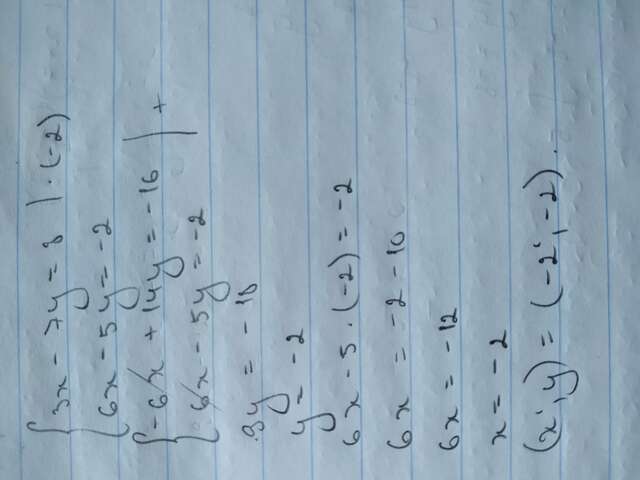 {3x - 7y = 8 | · (-2)
{6x - 5y = -2
{-6x + 14y = -16 | +
{6x - 5y = -2
9y = -18
y = -2
6x - 5 · (-2) = -2
6x = -2 - 10
6x = -12
x = -2
(x', y) = (-2', -2).